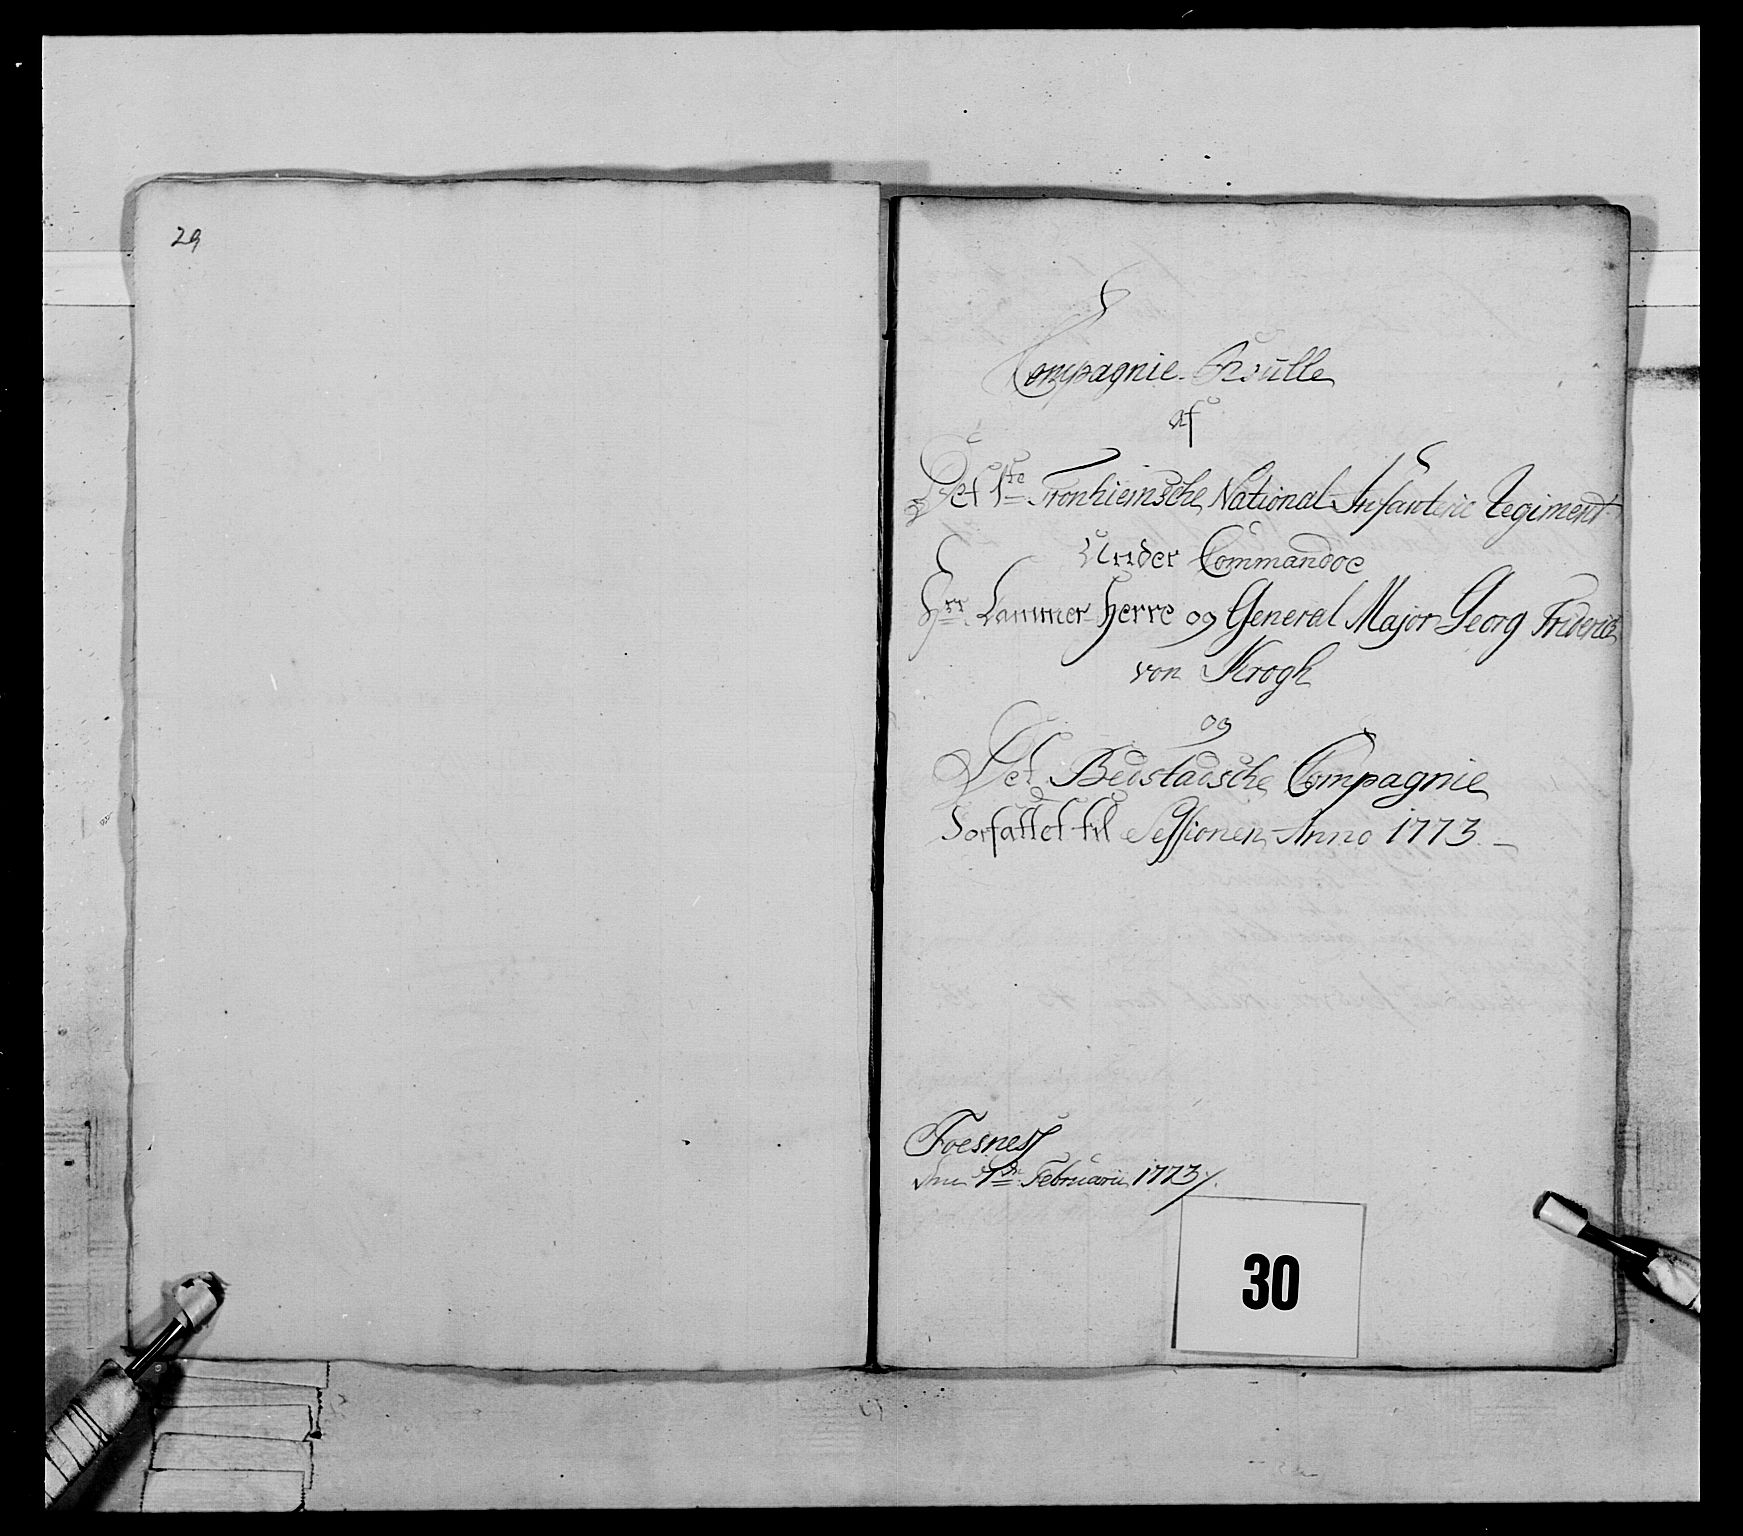 29
Compagnie Roulle
af
Det 1ste Tronhiemsche National Infanterie Regiment
Under Commandoe
Hrr Cammer Herre og General Major Georg Friderich
von Krogh
og
Det Bedstadsche Compagnie
Forfattet til Sessionen Anno 1773
Foesness
den Februarii 1773
30